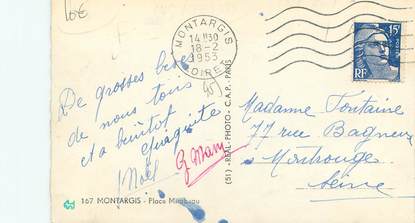 10€
MONTARGIS
14 H30
18-2
1953
LOIRET
15F
RF
De grosses bises
de nous tous
et a bientot
Noël
Madame Fontaine
77 rue Bagneux
Montrouge
Seine
(51) - REAL-PHOTO - C.A.P. - PARIS -
167 MONTARGIS - Place Mirabeau